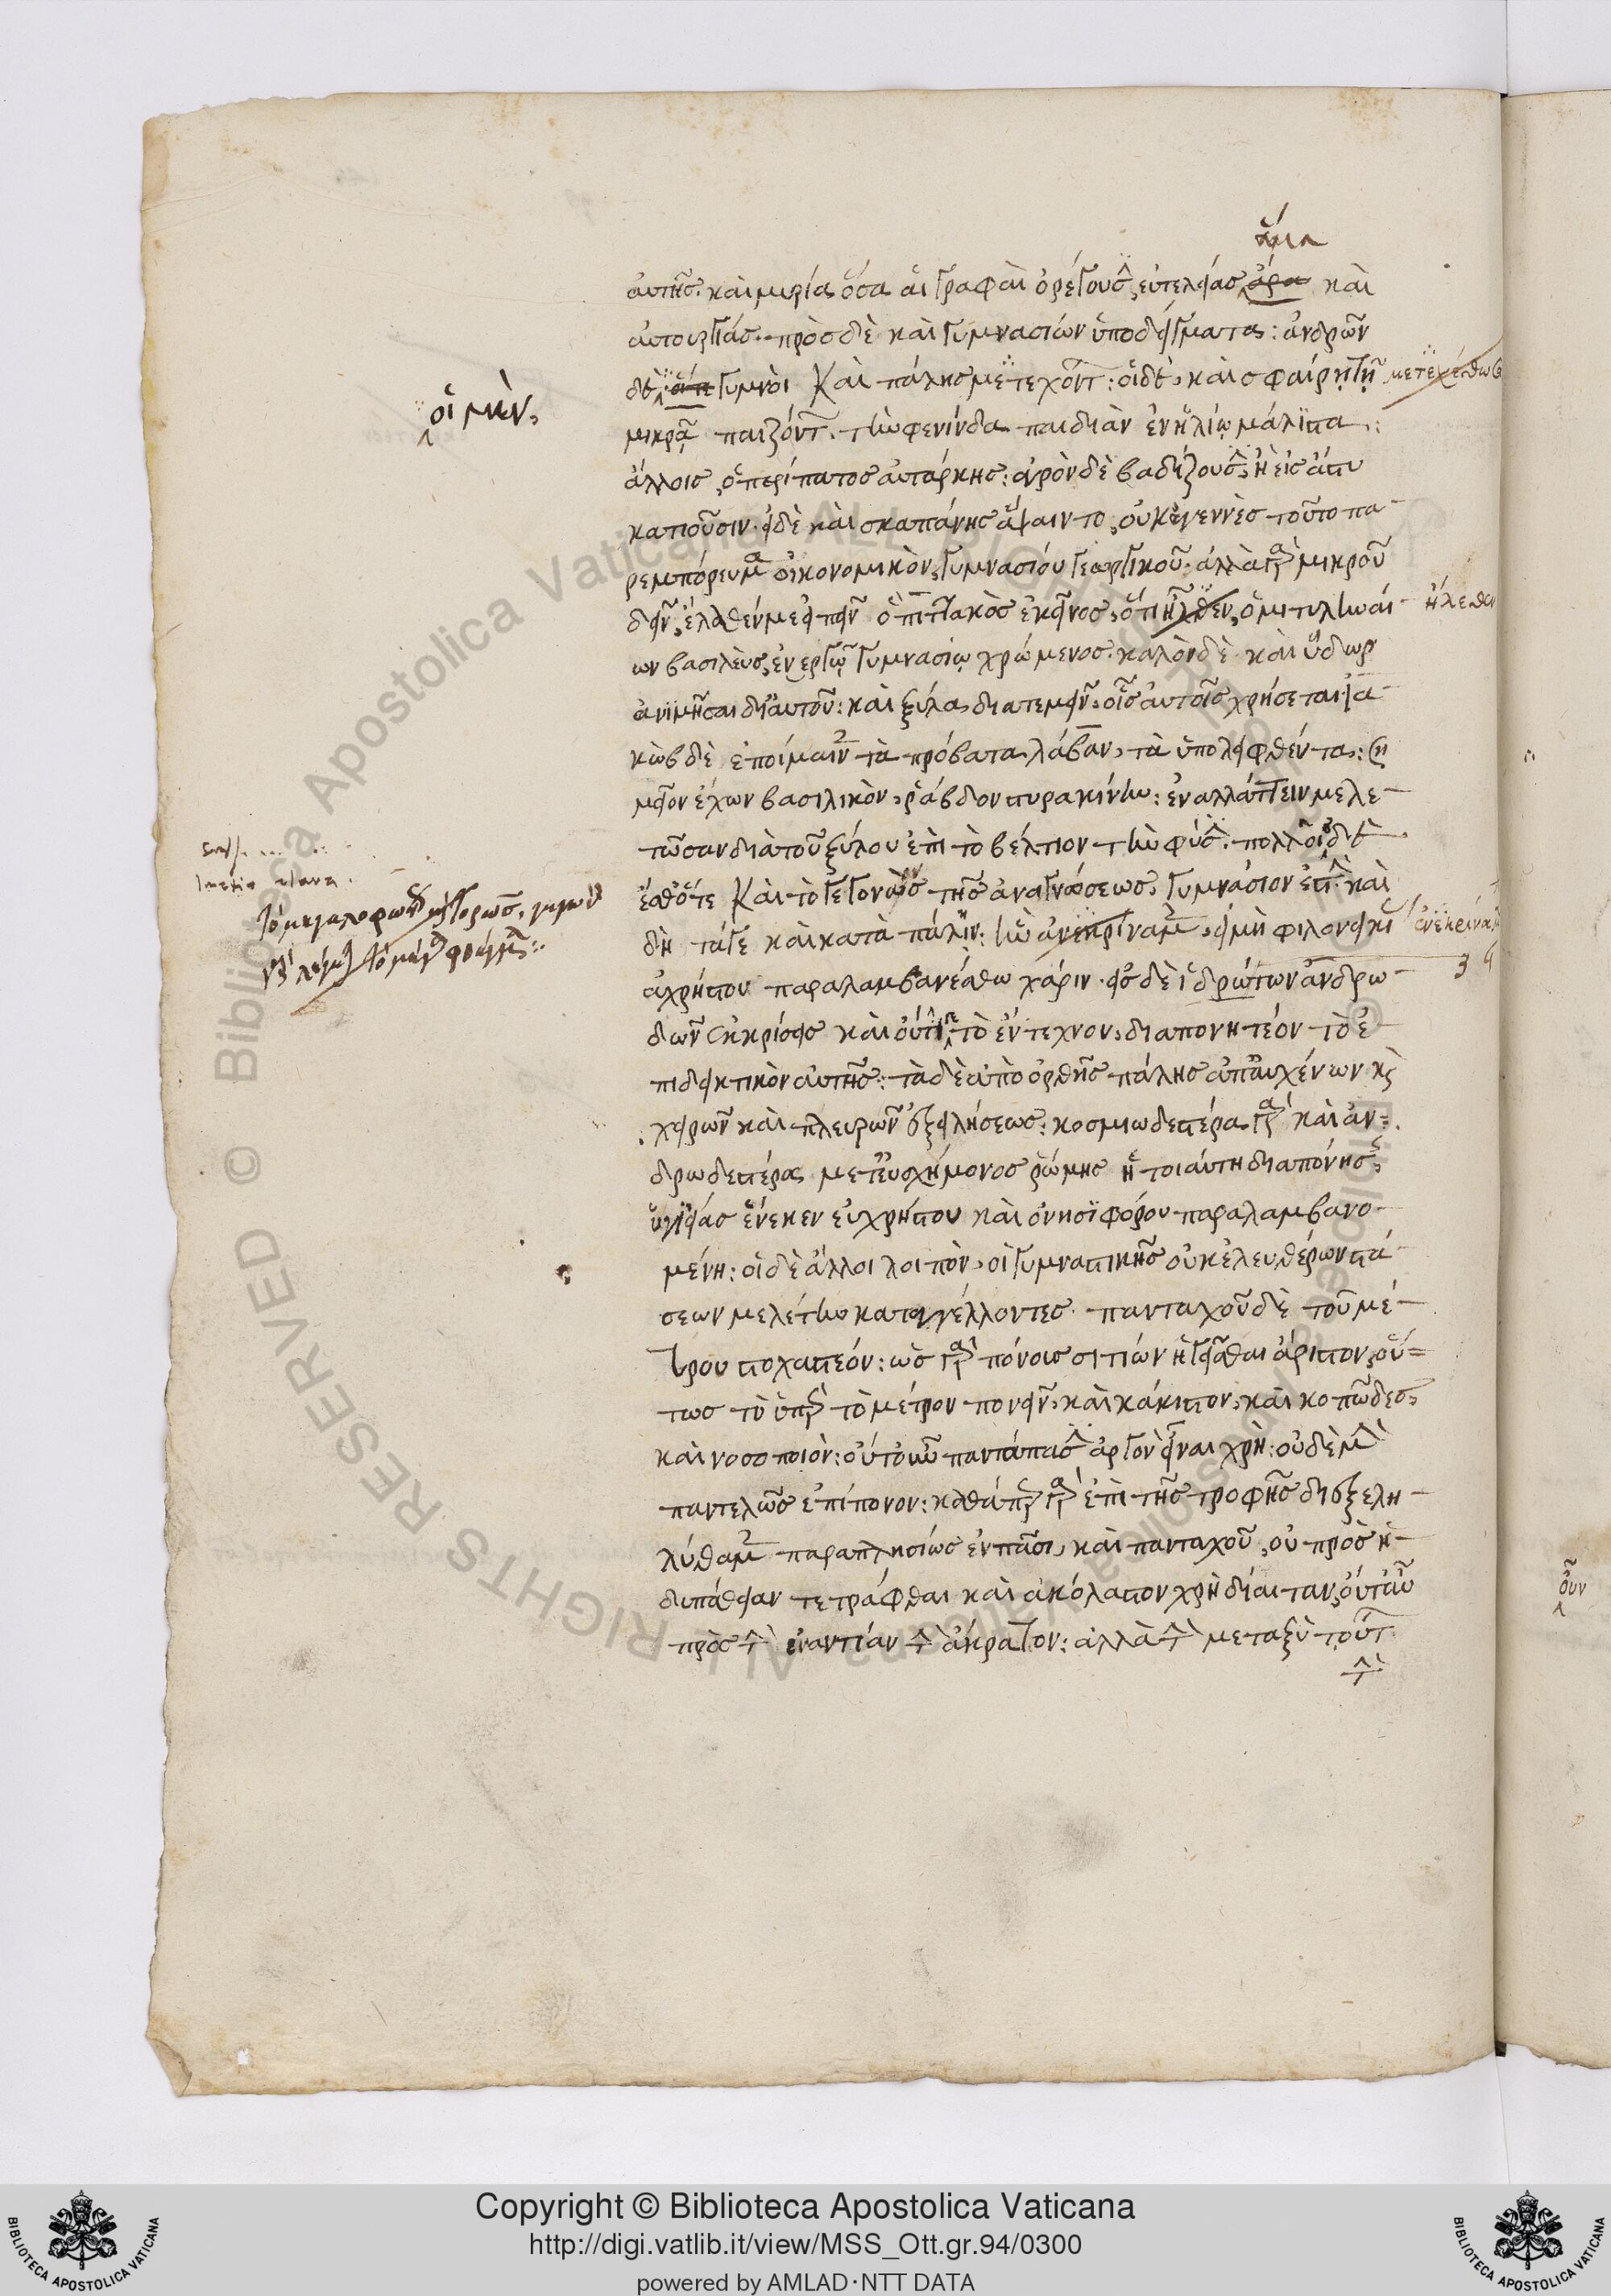 ἅμα
αὐτῆς. καὶ μυρία ὅσα αἱ γραφαὶ ὀρέγουσι, εὐτελείας ἄρα καὶ
αὐτουργίας. πρὸς δὲ καὶ γυμνασίων ὑποδείγματα: ἀνδρῶν
δὲ γυμνοὶ καὶ πάλης μετεχόντ: οἱ δὲ, καὶ σφαίρῃ τῇ
οἱ μὲν,
μικρᾷ παιζόντ. τὴν φενίνδα παιδιὰν ἐν ἡλίῳ μάλιστα:
ἄλλοις, ὁ περίπατος αὐτάρκης: ἀγρὸν δὲ βαδίζουσι, ἢ εἰς ἄστυ
κατιοῦσιν. εἰ δὲ καὶ σκαπάνης ἅψαιντο, οὐκ ἀγεννὲς τοῦτο πα-
ρεμπόρευμα οἰκονομικὸν, γυμνασίου γεωργικοῦ. ἀλλὰ γὰρ μικροῦ
δεῖν, ἔλαθέν με εἰπεῖν ὁ πιττακὸς ἐκεῖνος, ὅτι ἦλθεν, ὁ μιτυληναί-
ων βασιλεὺς, ἐνεργῷ γυμνασίῳ χρώμενος. καλὸν δὲ καὶ ὕδωρ
ἀνιμῆσαι δι' αὐτοῦ: καὶ ξύλα διατεμεῖν, οἷς αὐτοῖς χρήσεται ἰα-
κὼβ δὲ ἐποίμαιν τὰ πρόβατα λάβαν, τὰ ὑπολειφθέντα: ση
μεῖον ἔχων βασιλικὸν, ῥάβδον στυρακίνην: ἐναλλάττειν μελε-
τῶσαν διὰ τοῦ ξύλου ἐπὶ τὸ βέλτιον τὴν φύσ. πολλοῖς δὲ
ἔσθ' ὅτε καὶ τὸ γεγονὼς τῆς ἀναγνώσεως, γυμνάσιον ἐστ. καὶ
δὴ τά γε καὶ κατὰ πάλην: ἣν ἀνεκρίναμ, εἰ μὴ φιλονεικί
ἀχρήστου παραλαμβανέσθω χάριν. εἰς δὲ ἱδρώτων ἀνδρω-
δῶν ἐκκρίσεις καὶ οὔτι γε τὸ ἔντεχνον, διαπονητέον τὸ ἐ-
πιδεικτικὸν αὐτῆς: τὰ δὲ ἀπὸ ὀρθῆς πάλης ἀπ' αὐχένων κὶ
χειρῶν καὶ πλευρῶν ἐξειλήσεως: κοσμιωδεστέρα γὰρ καὶ ἀν-
δρωδεστέρα μετ' εὐσχήμονος ῥώμης ἡ τοιαύτη διαπόνησις,
ὑγιείας ἕνεκεν εὐχρήστου καὶ ὀνησιφόρου παραλαμβανο-
μένη: οἱ δὲ ἄλλοι λοιπὸν, οἱ γυμναστικῆς οὐκ ἐλευθέρων στά
σεων μελέτην καταγγέλλοντες. πανταχοῦ δὲ τοῦ μέ-
τρου στοχαστέον: ὡς γὰρ πόνους σιτίων ἡγεῖσθαι ἄριστον, οὕ-
τως τὸ ὑπὲρ τὸ μέτρον πονεῖν, καὶ κάκιστον, καὶ κοπῶδες,
καὶ νοσοποιὸν: οὔτ' οὖν παντάπασι ἀργὸν εἶναι χρὴ: οὐδὲ μὴν
παντελῶς ἐπίπονον: καθάπερ γὰρ ἐπὶ τῆς τροφῆς διεξελη-
λύθαμ παραπλησίως ἐν πᾶσι, καὶ πανταχοῦ, οὐ πρὸς ἡ-
δυπάθειαν τετράφθαι καὶ ἀκόλαστον χρὴ δίαιταν, οὔτ' αὖ
πρὸς τὴν ἐναντίαν τὴν ἄκρατον: ἀλλὰ τὴν μεταξὺ τούτ
τὴν
οὖν
Copyright © Biblioteca Apostolica Vaticana
http://digi.vatlib.it/view/MSS_Ott.gr.94/0300
powered by AMLAD·NTT DATA